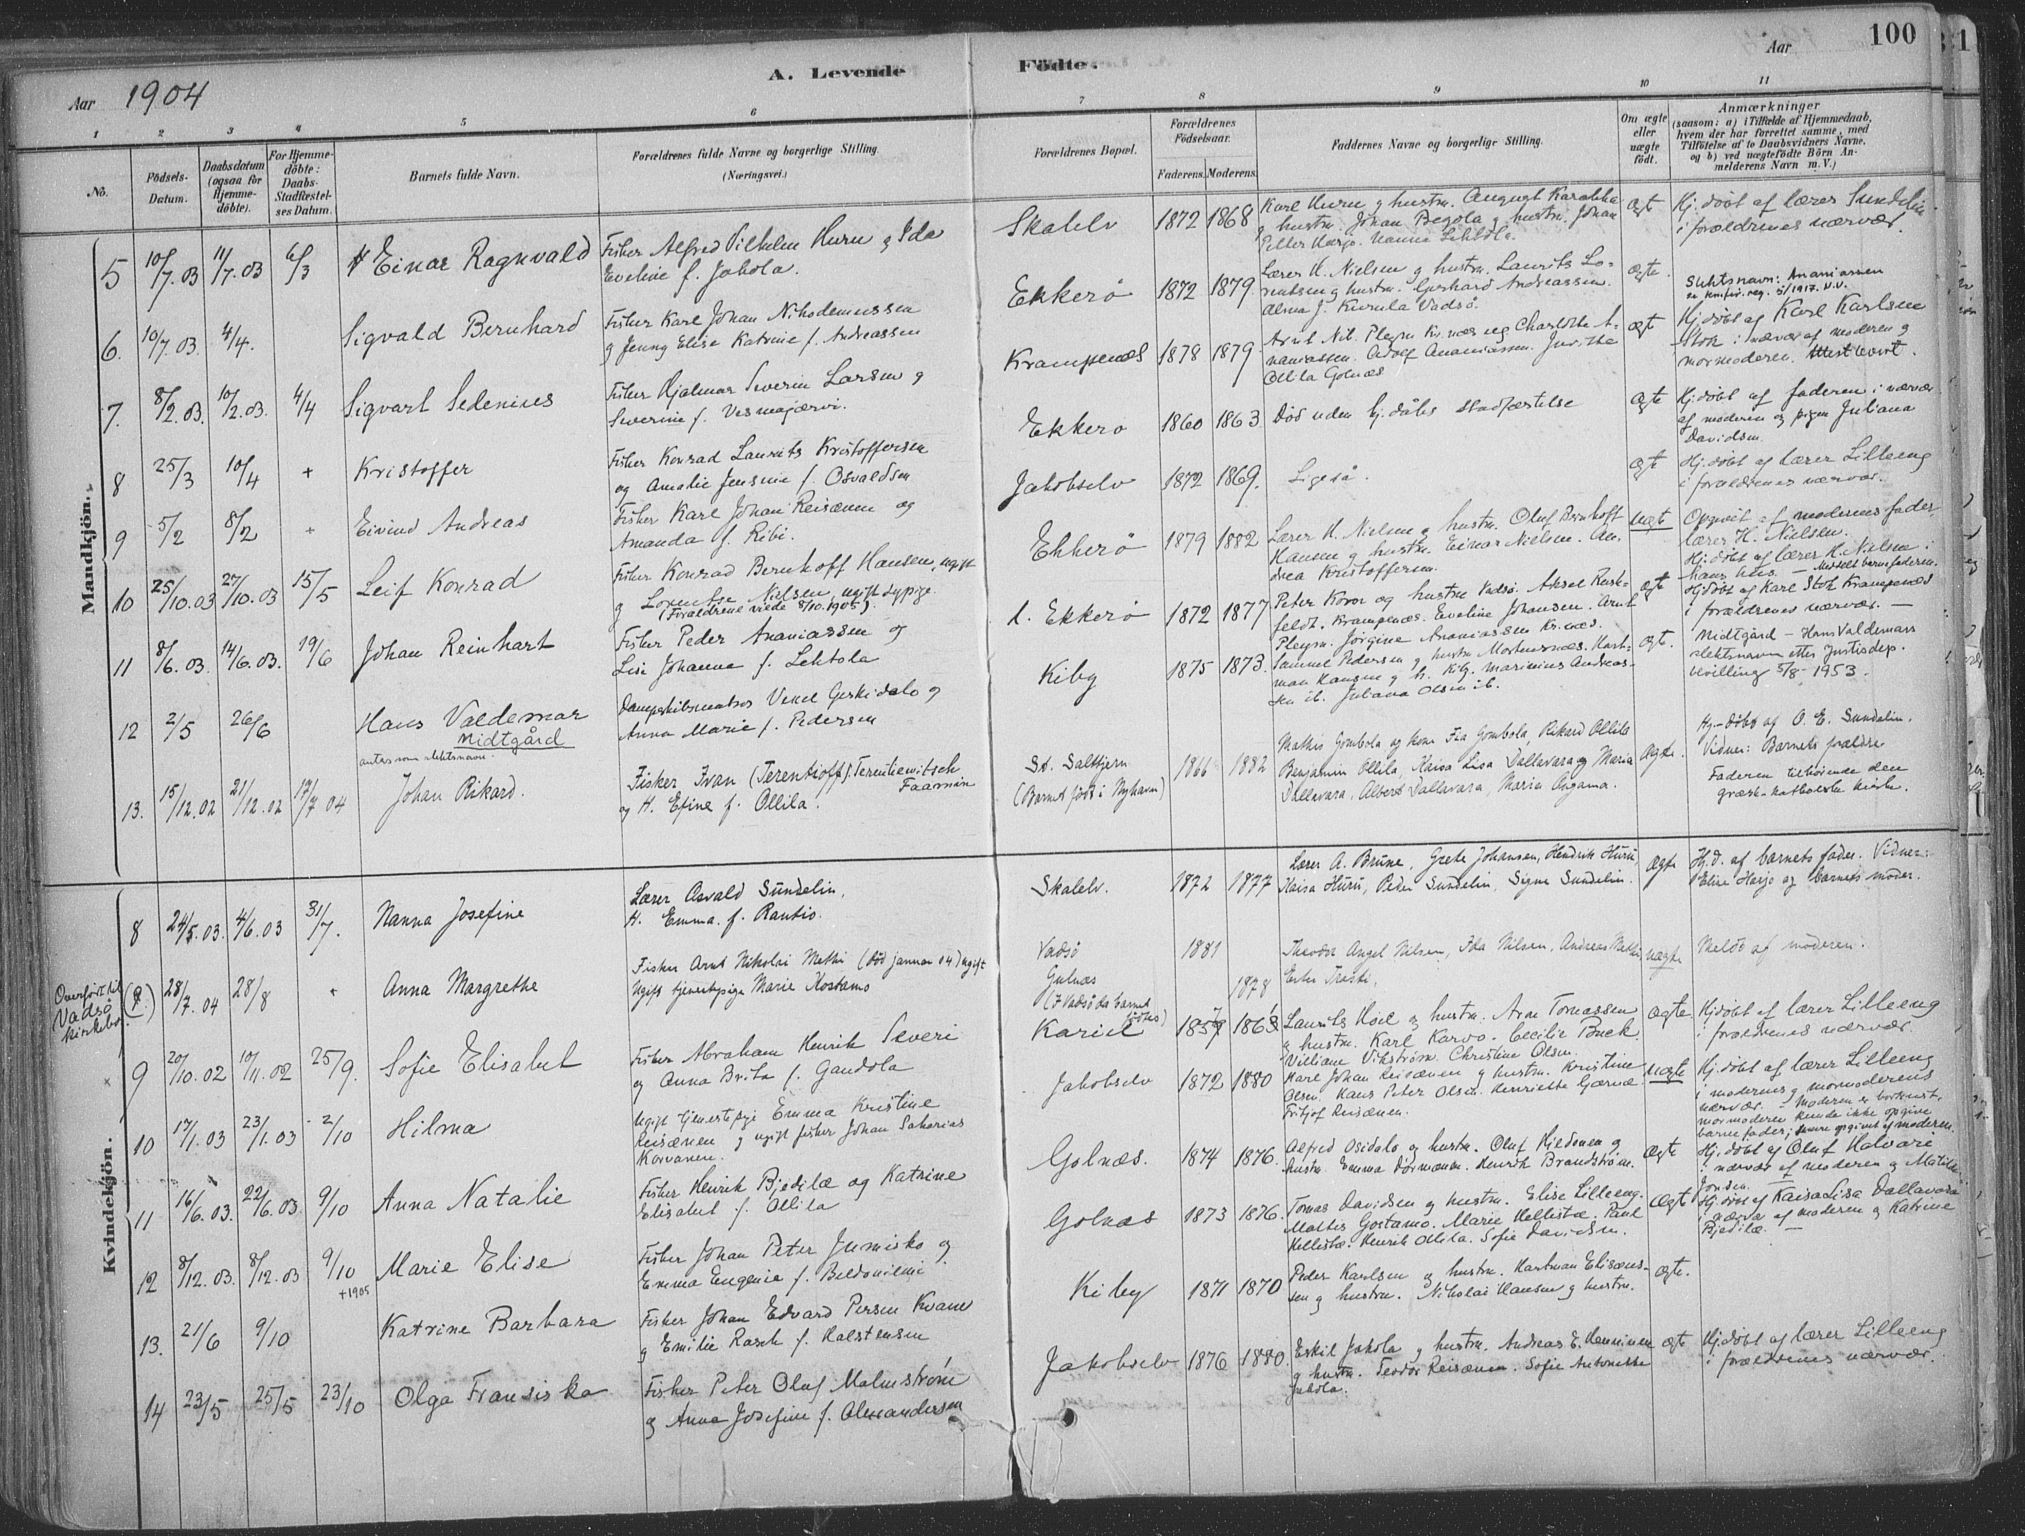 100
A. Levende Födte.
Aar 1904
Aar
1 2 3 4 5 6 7 8 9 10 11
No.
Födsels-Datum.
Daabsdatum (ogsaa for Hjemme-döbte).
For Hjemme-döbte: Daabs-Stadfæstel-ses Datum.
Barnets fulde Navn.
Forældrenes fulde Navne og borgerlige Stilling.
(Næringsvei.)
Forældrenes Bopæl.
Forældrenes Födselsaar.
Faderens. Moderens.
Faddernes Navne og borgerlige Stilling.
Om ægte eller uægte födt.
Anmærkninger
(saasom: a) i Tilfælde af Hjemmedaab, hvem der har forrettet samme, med Tilföielse af to Daabsvidners Navne, og b) ved uægtefödte Börn An-melderens Navn m. V.)
Mandkjön.
5 10/7.03 11/7.03 6/3 Einar Ragnvald
Fisker Alfred Vilhelm Huru g Ida
Eveline f. Jakola.
Skalelv 1872 1868
Karl Huru g hustru. August Karakka
g hustru. Johan Begola g hustru. Johan
Petter Harjo. Nanna Lehtola.
ægte
Hj. døbt af lærer Sundelin
i forældrenes nærvær.
6. 10/7.03. 4/4. Sigvald Bernhard
Fisker Karl Johan Nikodemussen
g Jenny Elise Katrine f. Andreassen
Ekkerø 1872 1879
Lærer H. Nielsen g hustru. Laurits Lo-
rentsen g hustru. Gerhard Andreassen.
Alma J. Kumla Vadsø.
ægte.
Slektsnavn: Ananiassen
7. 8/2.03. 10/2.03. 4/4 Sigvart Sedenius
Fisker Hjalmar Severin Larsen g
Severine f. Vesmajærvi.
Krampenæs 1878 1879
naniassen. Adolf Ananiassen.
Ollila Golnæs
ægte
Hj. døbt af Karl Karlsen
Stok i nærvær af moderen g
mormoderen.
8 25/3 10/4 + Kristoffer
Fisker Konrad Laurits Kristoffersen
og Amalie Jensine f. Osvaldsen
Ekkerø 1860 1863
Død uden hj. dåbs stadfæstelse
ægte
Hj. døbt af faderen i nærvær
af moderen og pigen Juliana
Davidsen.
9 5/2 8/2 + Eivind Andreas
Fisker Karl Johan Reisænen og
Amanda f. Ribi.
Jakobselv 1872 1869.
Ligeså.
ægte
Hj. døbt af lærer Lilleeng
i forældrenes nærvær.
10 25/10.03 27/10.03 15/5 Leif Konrad
Fisker Konrad Bernhoff Hansen, ugift
g Lorentse Nielsen, ugift sypige.
(Forældrene viede 8/10.1905).
Ekkerø 1879 1882
Lærer H. Nielsen g hustru. Oluf Bernhoff
Hansen g hustru. Einar Nielsen. An-
drea Kristoffersen.
uægte
Opgivet af moderens fader,
lærer H. Nielsen.
Hj. døbt af lærer H. Nielsen i
hans hus. – Meddelt barnefaderen.
11 8/6.03. 14/6.03. 19/6 Johan Reinhart
Fisker Peder Ananiassen og
Lise Johanne f. Lehtola
l. Ekkerø 1872 1877
Peter Koros og hustru Vadsø. Aksel Rusk-
feldt. Krampenæs. Eveline Johansen. Arnt
Pleym. Jørgine Ananiassen Kr.næs.
ægte
Hj. døbt af Karl Stok Krampenæs
i forældrenes nærvær. –
12 2/5 26/6 Hans Valdemar
Midtgård
antas som slektsnavn
Anna Marie f. Pedersen
Kiby 1875 1873.
Samuel Pedersen g hustru Mortensnæs. Hart-
man Hansen g h. Kiby. Marinius Andreas-
sen ib. Juliana Olsen ib.
ægt.
Midtgård – Hans Valdemars
slektsnavn etter Justisdep.
bevilling 5/8 1953.
13. 15/12.02 21/12.02 17/7 04 Johan Rikard.
Fisker Ivan (Terentioff) Terentiewitsch
Faarnin
og H. Efine f. Ollila.
St. Saltjern
(Barnet født i Nyhavn)
1866 1882
Mathis Gombola og kone Fia Gombola, Rikard Ollila
Benjamin Ollila, Kaisa Lisa Dallavara og Maria
Dallavara, Albert Dallavara, Maria Angama.
Ægte.
Hj.-døbt af O. E. Sundelin.
Vidner: Barnets forældre
Faderen tilhørende den
græsk-katholske kirke.
Kvindekjön.
8 24/5.03. 4/6.03 31/7. Nanna Josefine
Lærer Osvald Sundelin,
H. Emma. f. Rantio.
Skalelv. 1872 1877
Lærer A. Brune, Grete Johansen, Hendrik Huru,
Kaisa Huru, Peder Sundelin, Signe Sundelin.
Ægte
Hj.d. af barnets fader. Vidner:
Elise Harjo og barnets moder.
Overført til
Vadsø
kirkebo.
28/7.04 28/8 Anna Margrethe
Fisker Arnt Nikolai Mathi (død januar 04) ugift
Ugift tjenestepige Marie Kostamo
Vadsø
Golnæs
(I Vadsø da barnet
fødtes)
1881
1878
Theodor Angel Nilsen, Ida Nilsen, Andreas Mathis
uægte
Meldt af moderen.
9 20/10.02 10/11.02 25/9. Sofie Elisabet
Fisker Abraham Henrik Severi
og Anna Brita f. Gandola
Kariel 1857 1863
Laurits Hoel og hustru. Arne Tomassen
g hustru. Karl Karvo. Cecilie Buck
William Vikstrøm. Christine Olsen.
ægte.
Hj. døbt af lærer Lilleeng
i forældrenes nærvær.
10 17/1.03 23/1.03 2/10 Hilma
Ugift tjenestepige Emma Kristine
Reisænen g ugift fisker Johan Sakarias
Korvanen.
Jakobselv 1872 1880
Karl Johan Reisænen g hustru. Kristine
Olsen. Hans Peter Olsen. Henriette Gjærnæ.
Fritjof Reisænen.
uægte
Hj. døbt af lærer Lilleeng
i moderens g mormoderens
nærvær. – Moderen er bortreist,
mormoderen kunde ikke opgive
barnefader; senere opgivet af moderen.
11 16/6.03. 22/6.03 9/10 Anna Natalie
Fisker Henrik Bjedilæ og Katrine
Elisabet f. Ollila
Golnæs. 1874 1876.
Alfred Osidalo og hustru. Oluf Hjedonen g
hustru. Emma Dørmænen. Henrik Brandstrøm.
ægte
Hj. døbt af Oluf Halvari
i nærvær af moderen g Matilde
Jonsen.
12 8/12.03. 8/12.03 9/10 Marie Elise
+1905
Fisker Johan Peter Jumisko og
Emma Eugenie f. Beldoniemi
Golnæs 1873 1876.
Tomas Davidsen og hustru. Elise Lilleeng.
Mattis Gostamo. Marie Hellistæ. Paul
Hellistæ. Henrik Ollila. Sofie Davidsen.
Ægt
Hj. døbt af Kaisa Lisa Dallavara
i nærvær af moderen og Katrine
Bjedilæ. –
13. 21/6 9/10 Katrine Barbara
Fisker Johan Edvard Persen Kvam
g Emilie Rasch f. Halstensen
Kiby 1871 1870
Peder Karlsen g hustru. Hartman Eliseus-
sen g hustru. Nikolai Hansen g hustru.
ægte.
14 23/5 25/5 23/10 Olga Fransiska
Fisker Peter Oluf Malmstrøm
og Anna Josefine f. Alexandersen
Jakobselv 1876 1880.
Eskil Jakola g hustru. Andreas E. Henninen
g hustru. Teodor Reisænen. Sofie Antonette
Jakola.
ægte
Hj. døbt af lærer Lilleeng
i forældrenes nærvær.